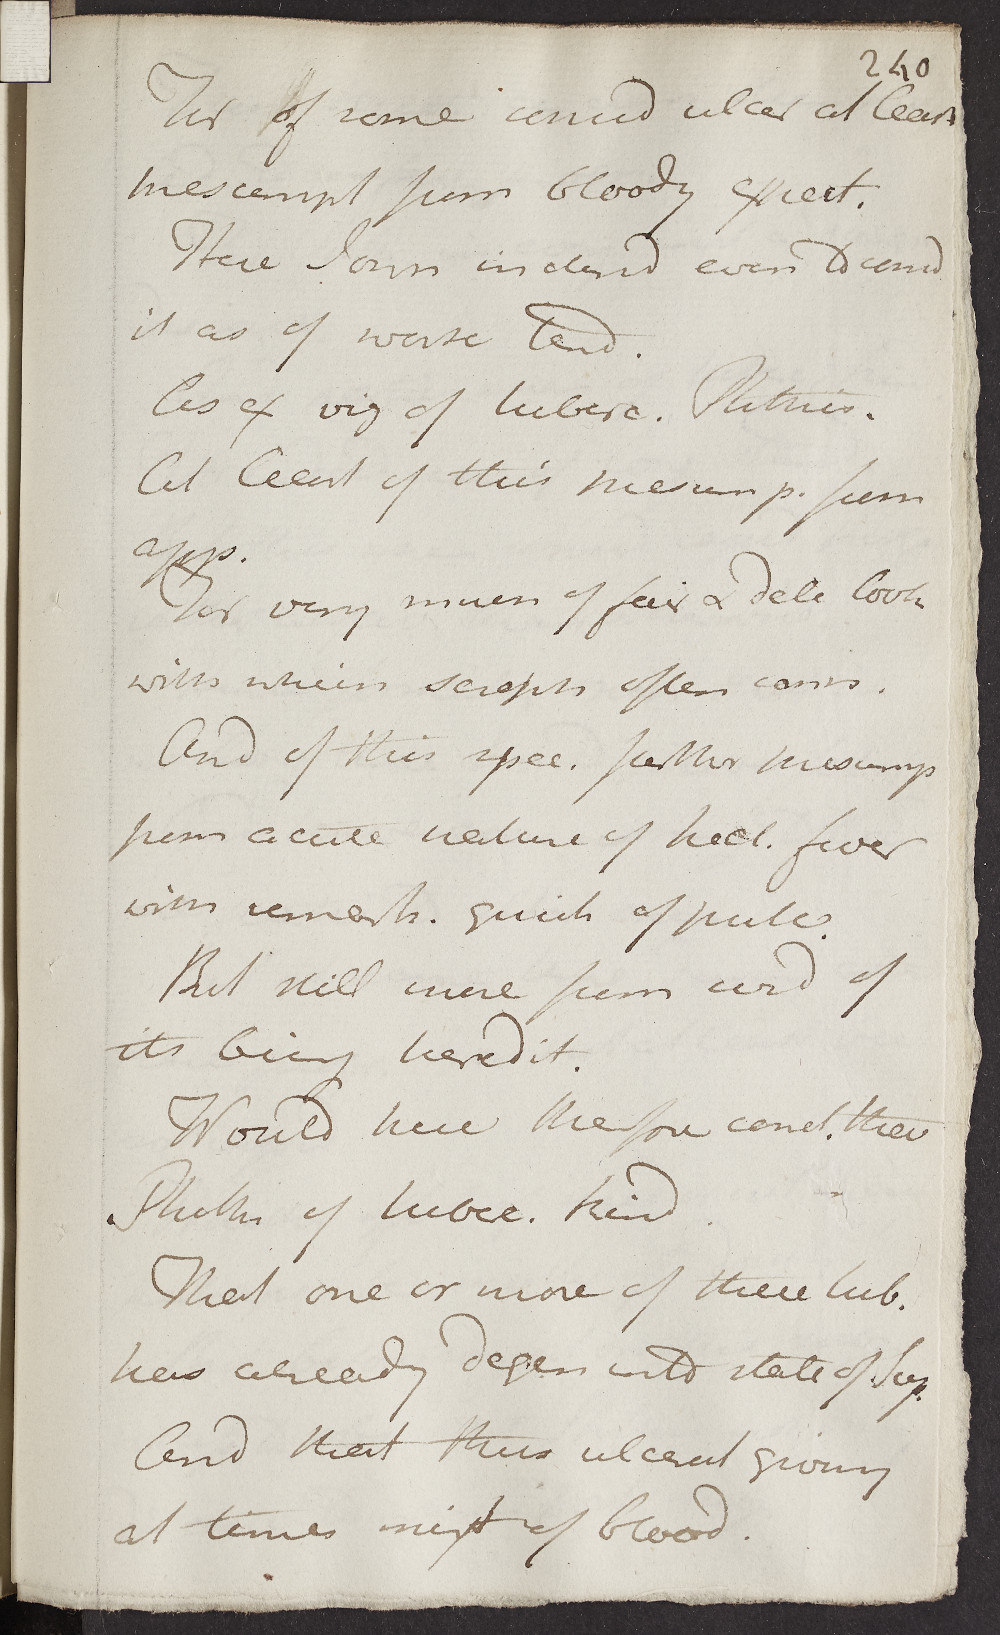 240
Tho' of some consid ulcer at least
presumpt from bloody expect.
Here I own inclin'd even to consid
it as of worse tend.
As ex vig of tuberc. Phthisis.
At least of this presump. from
app.
For very much of fair & deli look
with which scroph often conn.
And of this spec. farther presump
from acute nature of hect. fever
with remark. quick of pulse.
But still more from cons'd of
its being heredit.
Would here therefore concl. there
Phthis of tuberc. kind.
That one or more of these tub.
has already degen into state of Sup.
And that thus ulcerat giving
at times mixt of blood.